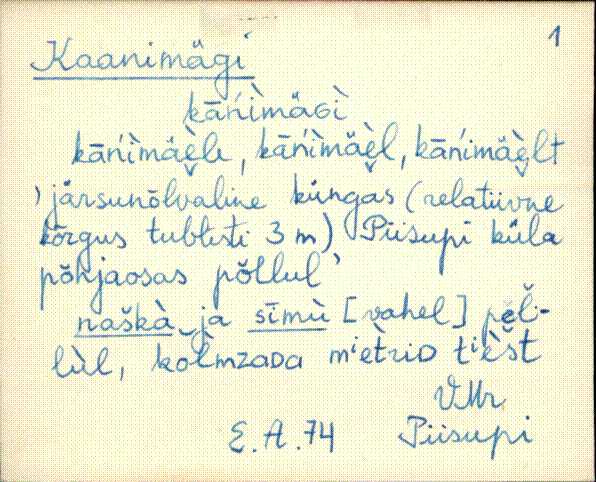 1
Kaanimägi
kāńìmäGì
kāńìmäèle, kāńìmäèl, kāńìmäèlt
'järsunõlvaline küngas (relatiivne
kõrgus tublisti 3 m) Piisupi küla
põhjaosas põllul'
naškà ja sīmù [vahel]
lùl, kolmzaDa miètriD tièšt
VMr
E.A.74 Piisupi